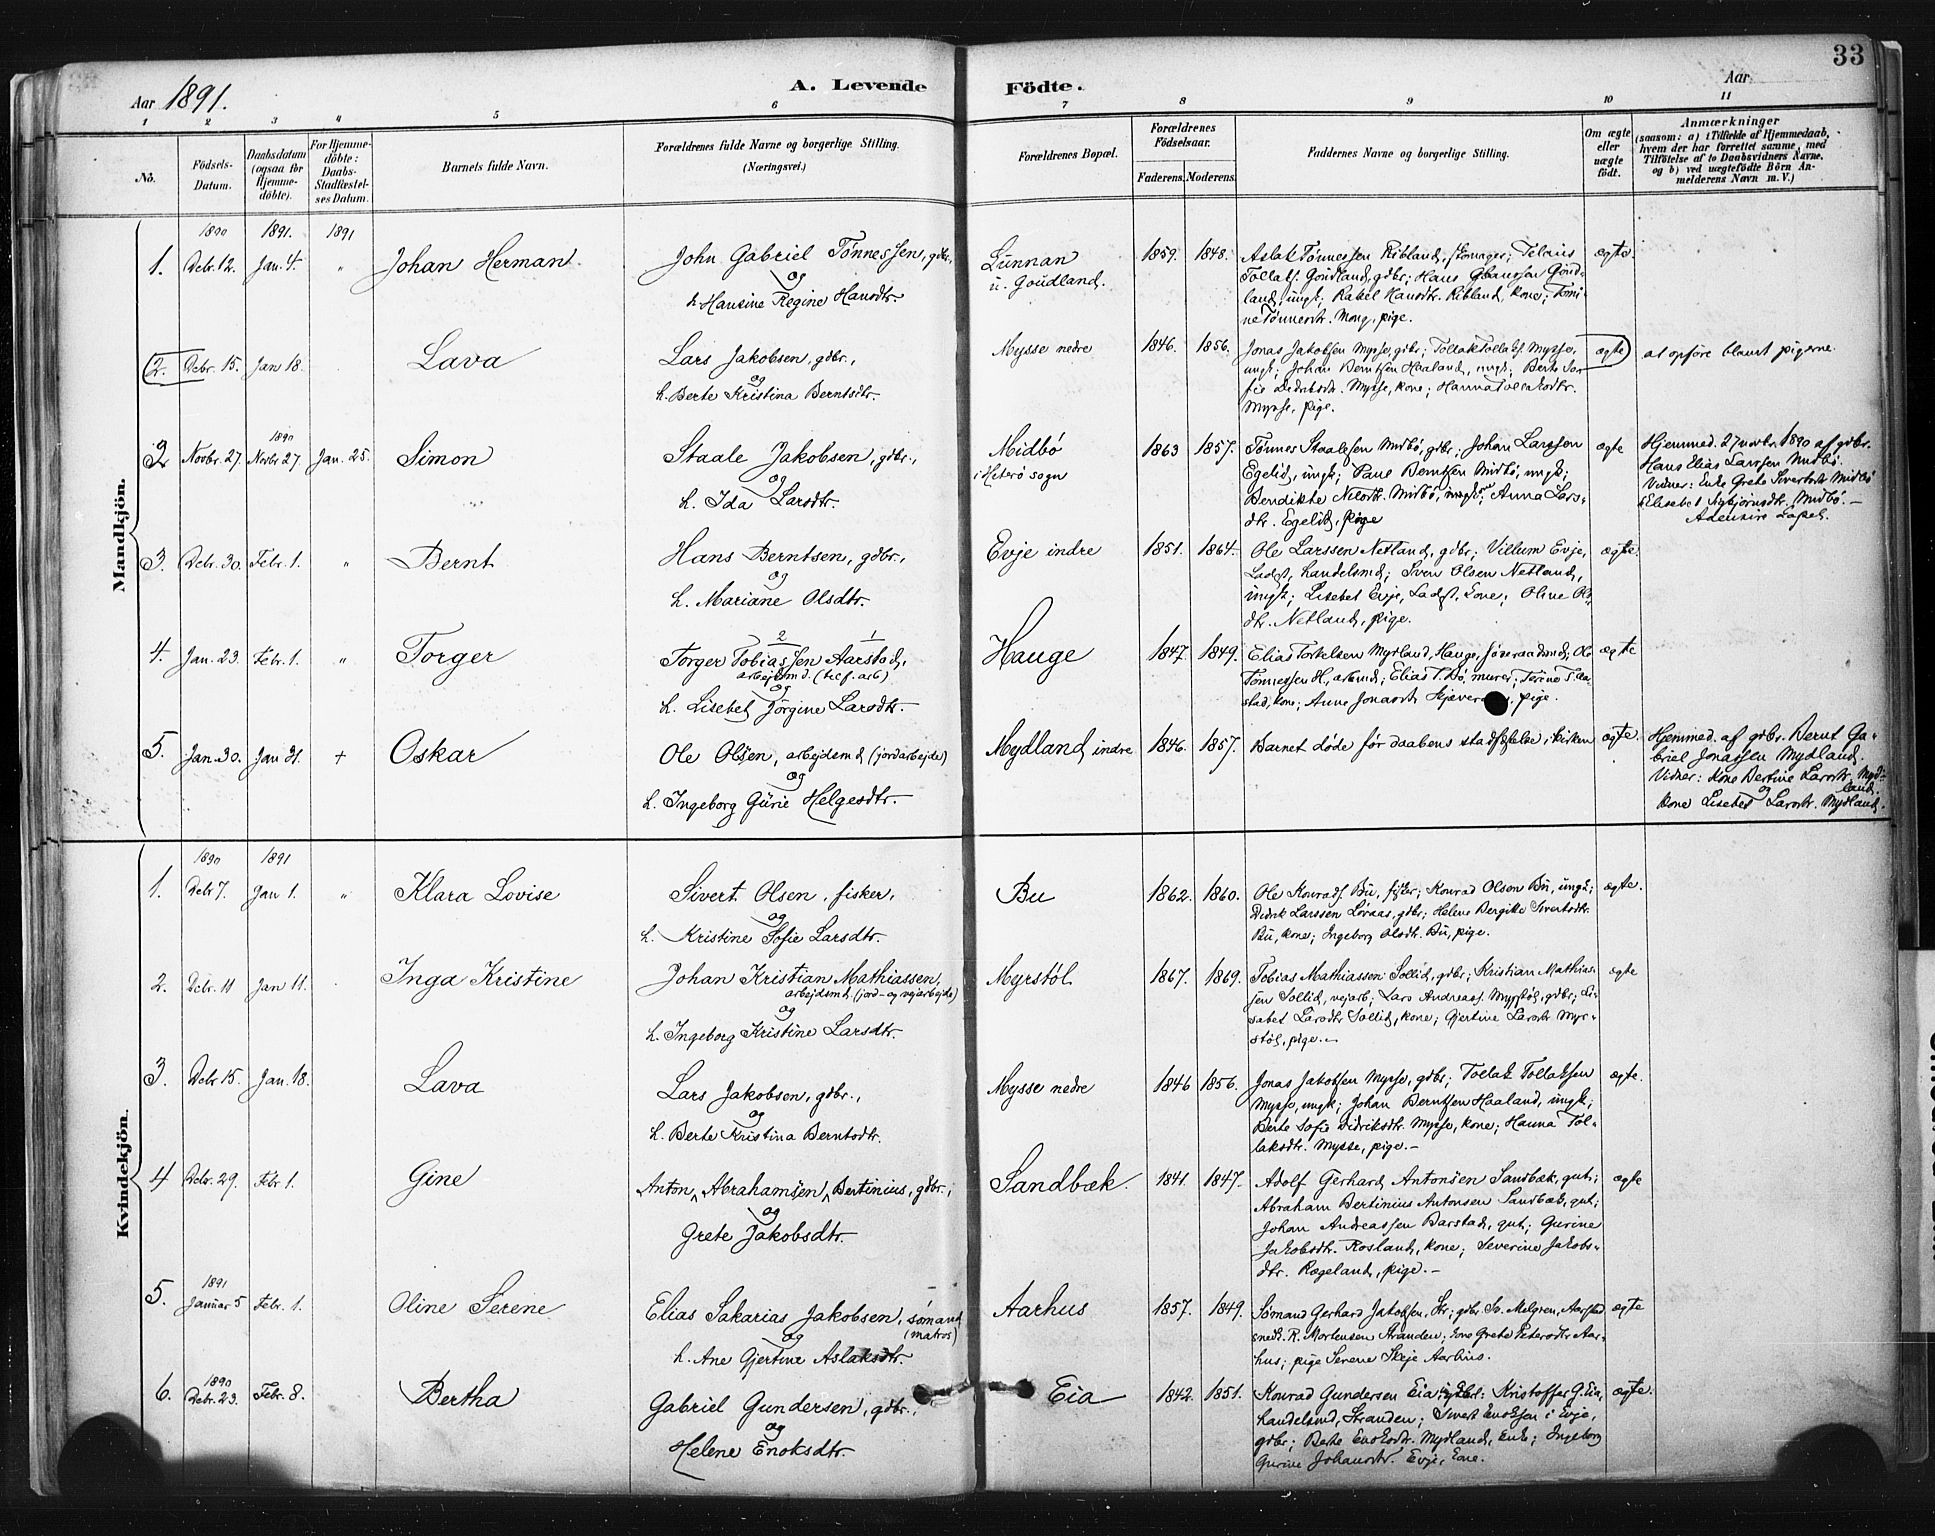 33
Aar 1891.
A. Levende Födte.
Aar
1 2 3 4 5 6 7 8 9 10 11
No.
Födsels-Datum.
Daabsdatum (ogsaa for Hjemmedöbte).
For Hjemmedöbte: Daabs-Stadfæstelses Datum.
Barnets fulde Navn.
Forældrenes fulde Navne og borgerlige Stilling.
(Næringsvei.)
Forældrenes Bopæl.
Forældrenes Födselsaar.
Faderens. Moderens.
Faddernes Navne og borgerlige Stilling.
Om ægte eller uægte födt.
Anmærkninger
(saasom: a) i Tilfælde af Hjemmedaab,
hvem der har forrettet samme, med
Tilföielse af to Daabsvidners Navne,
og b) ved uægtefödte Börn An-
melderens Navn m. V.)
Mandkjön.
1890 1891. 1891
1. Decbr. 12. Jan. 4. " Johan Herman.
John Gabriel Tønnessen, gdbr.,
og
h. Hansine Regine Hansdtr.
Lunnan
u. Goudland.
1859. 1848.
Aslak Tønnessen Ribland,
Tollaks. Goudland, gdbr; Hans
land, ungk; Rakel Hansdtr. Ribland, kone; Tomi-
ne Tønnesdtr. Mong, pige.
ægte.
2. Decbr. 15. Jan 18. Lava
Lars Jakobsen, gdbr.,
og
h. Berte Kristina Berntsdtr.
Mysse nedre
1846. 1856.
Jonas Jakobsen Mysse, gdbr; Tollak Tollaks. Mysse,
ungk; Johan Berntsen Haaland, ungk; Berte So-
fie Didriksdtr. Mysse, kone; Hanna Tollaksdtr.
Mysse, pige.
ægte
at opføre blandt pigerne.
1890
2 Novbr. 27. Novbr 27 Jan. 25. Simon
Staale Jakobsen, gdbr.,
og
h. Ida Larsdtr.
Midbö
i Heterö sogn
1863 1857.
Tønnes Staalesen Midbö, gdbr; Johan Larssen
Egelid, ungk; Paul Berntsen Midbö, ungk;
Bendikte Nilsdtr. Midbö, Anna Lars-
dtr. Egelid, pige
ægte
Hjemmed. 27 novbr. 1890 af gdbr.
Hans Elias Larssen Midbö.
Vidner: Enke Grete Sivertsdtr Midbö
Elisabet Asbjørnsdtr. Midbö.
3. Decbr. 30. Febr. 1. " Bernt
Hans Berntsen, gdbr.,
og
h. Mariane Olsdtr.
Evje indre
1851. 1864.
Ole Larssen Netland, gdbr; Villum Evje,
Ladst, handelsmd; Sven Olsen Netland,
ungk; Lisebet Evje, Ladst, kone; Oline Ols-
dtr. Netland, pige.
ægte.
4. Jan. 23. Febr. 1. " Torger
2 1
Torger Tobiassen Aarstad,
arbejdsmd.
og
h. Lisebet Jörgine Larsdtr.
Hauge
1847. 1849.
Elias Torkelsen Myrland, Hauge, Ole
Tønnessen H., arbmd; Elias T. Bö, murer;
stad, kone; Anne Jonasdtr pige.
ægte
5. Jan. 30. Jan 31. + Oskar
Ole Olsen, arbejdsmd (jordarbejde)
og
h. Ingeborg Gurie Helgesdtr.
Mydland indre
1846. 1857.
Barnet døde før daabens stadfæstelse i kirken
ægte.
Hjemmed. af gdbr. Bernt Ga-
briel Jonassen Mydland.
Vidner: Kone Bertine Larsdtr. Myd-
land og
Kone Lisebet Larsdtr. Mydland.
Kvindekjön.
1890 1891
1. Decbr 7. Jan 1. " Klara Lovise
Sivert Olsen, fisker,
og
h. Kristine Sofie Larsdtr.
Bu
1862. 1860.
Ole Konrads. Bu, fisker; Konrad Olsen Bu, ungk;
Didrik Larssen Løvaas, gdbr; Helene Bergitte Sivertsdtr.
Bu, kone; Ingeborg Olsdtr. Bu, pige.
ægte.
2. Decbr. 11 Jan 11. Inga Kristine
Johan Kristian Mathiassen,
arbejdsmd. (jord- og vejarbejde)
og
h. Ingeborg Kristine Larsdtr.
Myrstöl
1867. 1869.
Tobias Mathiassen Sollid, gdbr; Kristian Mathias-
sen Sollid, vejarb; Lars Andreass. Myrstöl, gdbr; Li-
sabet Larsdtr Sollid, kone; Gjertine Larsdtr Myr-
stöl, pige.
ægte
3. Decbr 15. Jan. 18. Lava
Lars Jakobsen, gdbr.,
og
h. Berte Kristina Berntsdtr.
Mysse nedre
1846 1856.
Jonas Jakobsen Mysse, gdbr; Tollak Tollaksen
Mysse, ungk; Johan Berntsen Haaland, ungk;
Berte Sofie Didriksdtr. Mysse, kone; Hanna Tol-
laksdtr. Mysse, pige.
ægte.
4 Decbr. 29. Febr 1. Gine
Anton, Abrahamsen, Bertinius, gdbr.,
og
Grete Jakobsdtr.
Sandbæk.
1841. 1847.
Adolf Gerhard Antonsen Sandbæk, gut;
Abraham Bertinius Antonsen Sandbæk, gut;
Johan Andreassen Barstad, gut; Gurine
Jakobsdtr. Rosland, kone; Severine Jakobs-
dtr. Rægeland, pige.
ægte
1891
5. Januar 5 Febr. 1. Oline Serene
Elias Sakarias Jakobsen, sømand
(matros)
og
h. Ane Gjertine Aslaksdtr.
Aarhus
1857. 1849.
Sømand Gerhard Jakobsen, Str; gdbr. Sv. Melgren, Aarstad
snedk. R. Mortensen Stranden; kone Grete Petersdtr Aar-
hus; pige Serene Skeje Aarhus.
ægte
1890
6. Decbr. 23. Febr. 8. Bertha
Gabriel Gundersen, gdbr.,
og
Helene Enoksdtr.
Eia
1842. 1851.
Konrad Gundersen Eia Kristoffer G. Eia,
handelsmd, Stranden; Sivert Enoksen i Evje,
gdbr; Berte Enoksdtr. Mydland, Enke; Ingeborg
Gurine Johansdtr. Evje, kone.
ægte.